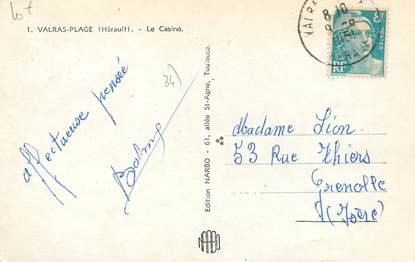 lot
1. VALRAS-PLAGE (Hérault). - Le Casino.
34)
affectueuse pensée
Edition NARBO - 61, allée St-Agne, Toulouse.
8-10
8 -8
1951
8F
RF
POSTES
Madame Lion
53 Rue Thiers
Grenolle
(Isère)
NARBO